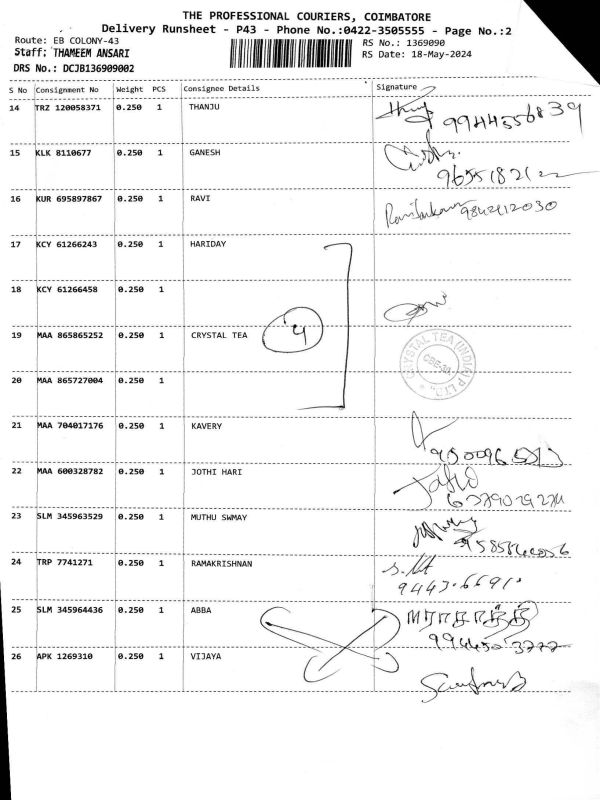 THE PROFESSIONAL COURIERS, COIMBATORE
Delivery Runsheet - P43 - Phone No.:0422-3505555 - Page No.:2
Route: EB COLONY-43 RS No.: 1369090
Staff: THAMEEM ANSARI RS Date: 18-May-2024
DRS No.: DCJB136909002
S No Consignment No Weight PCS Consignee Details Signature
14 TRZ 120058371 0.250 1 THANJU
15 KLK 8110677 0.250 1 GANESH
16 KUR 695897867 0.250 1 RAVI
17 KCY 61266243 0.250 1 HARIDAY
18 KCY 61266458 0.250 1
19 MAA 865865252 0.250 1 CRYSTAL TEA 4 CRYSTAL TEA (INDIA) P LTD.
20 MAA 865727004 0.250 1
21 MAA 704017176 0.250 1 KAVERY
22 MAA 600328782 0.250 1 JOTHI HARI
23 SLM 345963529 0.250 1 MUTHU SWMAY
24 TRP 7741271 0.250 1 RAMAKRISHNAN
25 SLM 345964436 0.250 1 ABBA
26 APK 1269310 0.250 1 VIJAYA